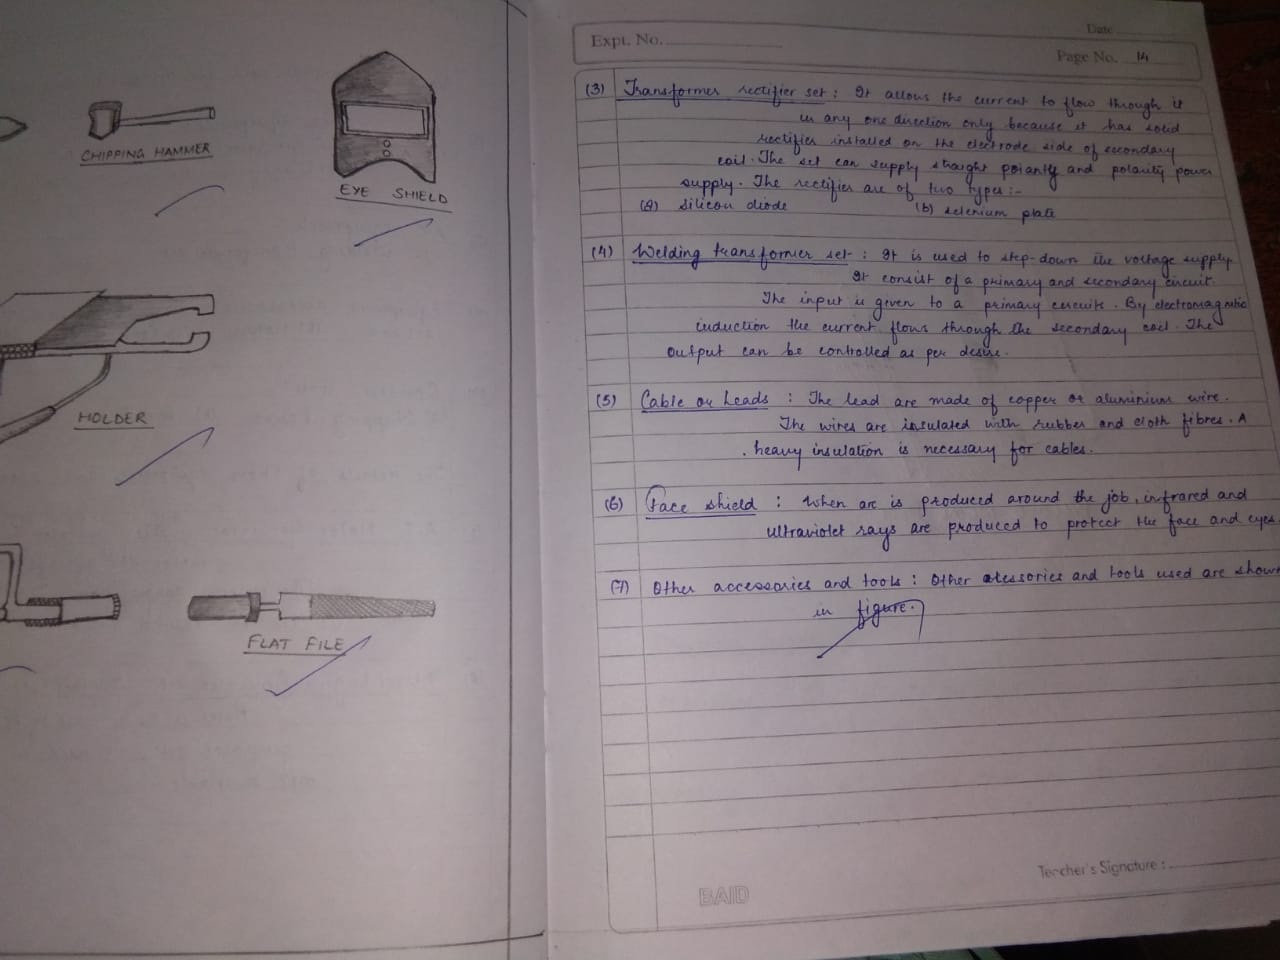 CHIPPING HAMMER
EYE SHIELD
HOLDER
FLAT FILE
Expt. No.
Date
Page No. 14
(3) Transformer rectifier set : It allows the current to flow through it
in any one direction only because it has solid
rectifier installed on the electrode side of secondary
coil. The set can supply straight poianty and polarity power
supply. The rectifier are of two types :-
(a) silicon diode (b) selenium plate
(4) Welding transformer set : It is used to step-down the voltage supply.
It consist of a primary and secondary circuit.
The input is given to a primary circuits. By electromagnetic
induction the current flows through the secondary coil. The
output can be controlled as per desire.
(5) Cable or Leads : The lead are made of copper or aluminium wire.
The wires are insulated with rubber and cloth fibres. A
heavy insulation is necessary for cables.
(6) Face shield : When arc is produced around the job, infrared and
ultraviolet rays are produced to protect the face and eyes.
(7) Other accessories and tools : Other and tools used are shown
in figure.
Teacher's Signature :
BAID